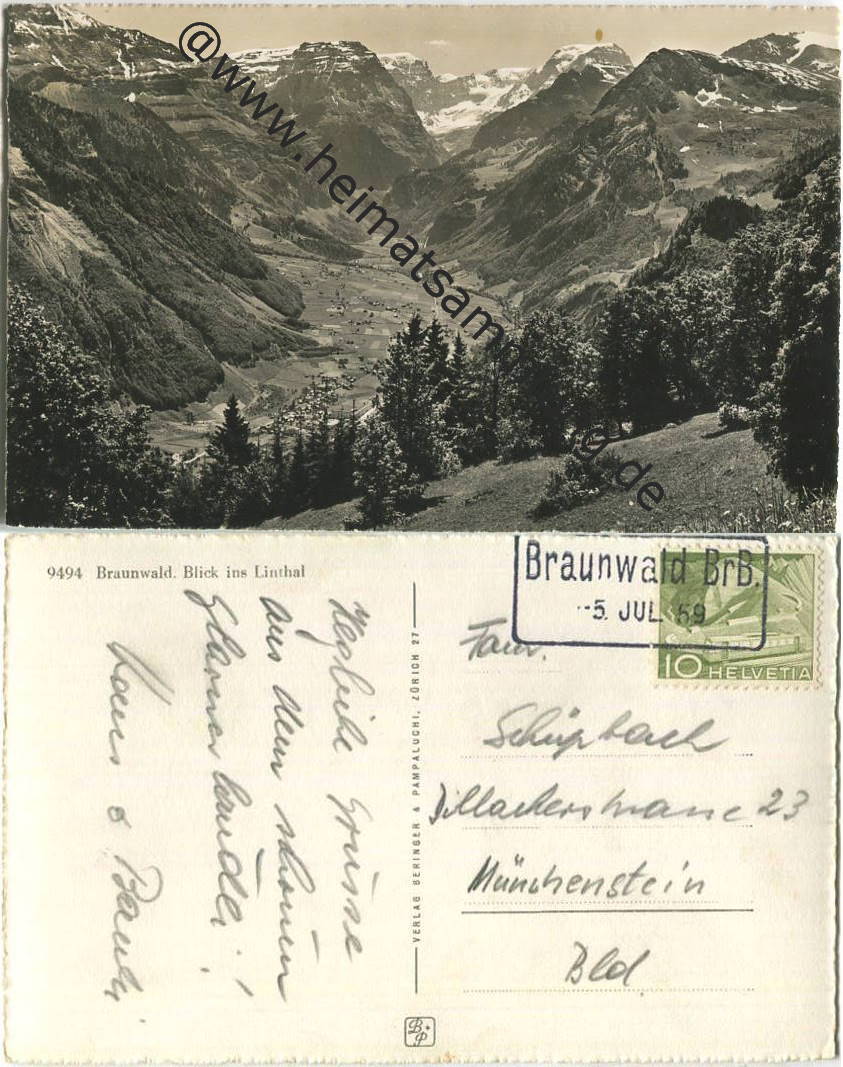 @www.heimatsammlung.de
9494 Braunwald. Blick ins Linthal
Herzliche Grüsse
aus dem schönen
Glarnerländli!
Hans &
VERLAG BERINGER & PAMPALUCHI, ZÜRICH 27
Braunwald BrB.
-5. JUL 59
10 HELVETIA
Fam.
Schüpbach
Dillackerstrasse 23
Münchenstein
Bld
B+P